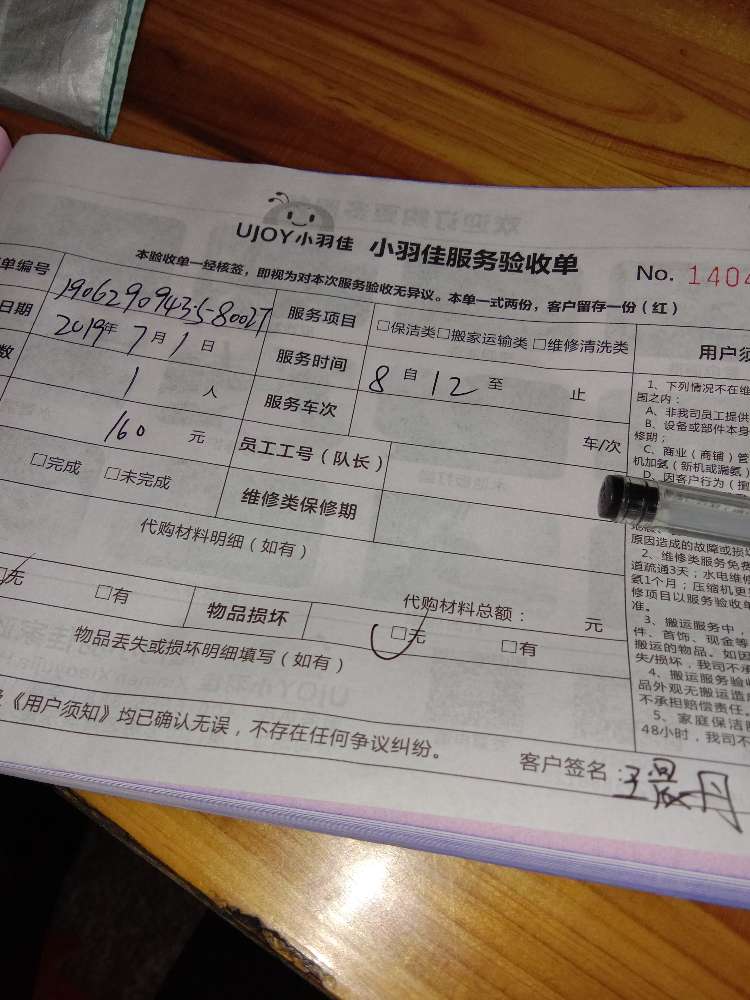 UJOY小羽佳 小羽佳服务验收单 No. 1404
本验收单一经核签，即视为对本次服务验收无异议。本单一式两份，客户留存一份（红）
单编号 190629094358002T 服务项目 □保洁类□搬家运输类 □维修清洗类
日期 2019年 7月 1日 服务时间 8 自 12 至 止
数 1 人 服务车次 车/次
160 元 员工工号（队长）
□完成 □未完成 维修类保修期
代购材料明细（如有）
代购材料总额： 元
□无 □有 物品损坏 □无 □有
物品丢失或损坏明细填写（如有）
《用户须知》均已确认无误，不存在任何争议纠纷。
客户签名：
用户须
1、下列情况不在维
围之内：
A、非我司员工提供
B、设备或部件本身
修期；
C、商业（商铺）管
机加氨（新机或漏氨）
D、因客户行为（擅
原因造成的故障或损
2、维修类服务免费
道疏通3天；水电维
氨1个月；压缩机更
修项目以服务验收单
准。
3、搬运服务中，
件、首饰、现金等
搬运的物品。如因
失/损坏，我司不承
4、搬运服务验收
品外观无搬运造
不承担赔偿责任
5、家庭保洁
48小时，我司不